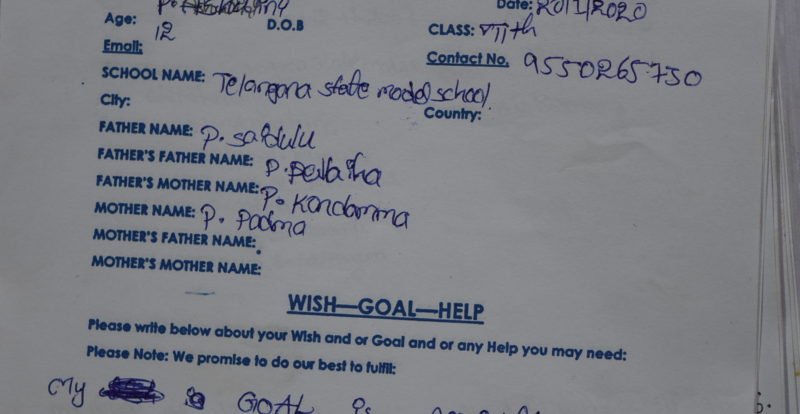 P.
Date: 20/1/2020
Age: 12
D.O.B
CLASS: VIIth
Email:
Contact No. 9550265730
SCHOOL NAME: Telangana state model school
City:
Country:
FATHER NAME: P. saidulu
FATHER'S FATHER NAME: P.
FATHER'S MOTHER NAME: P. Kondamma
MOTHER NAME: P. Padma
MOTHER'S FATHER NAME:
MOTHER'S MOTHER NAME:
WISH—GOAL—HELP
Please write below about your Wish and or Goal and or any Help you may need:
Please Note: We promise to do our best to fulfil:
My GOAL is